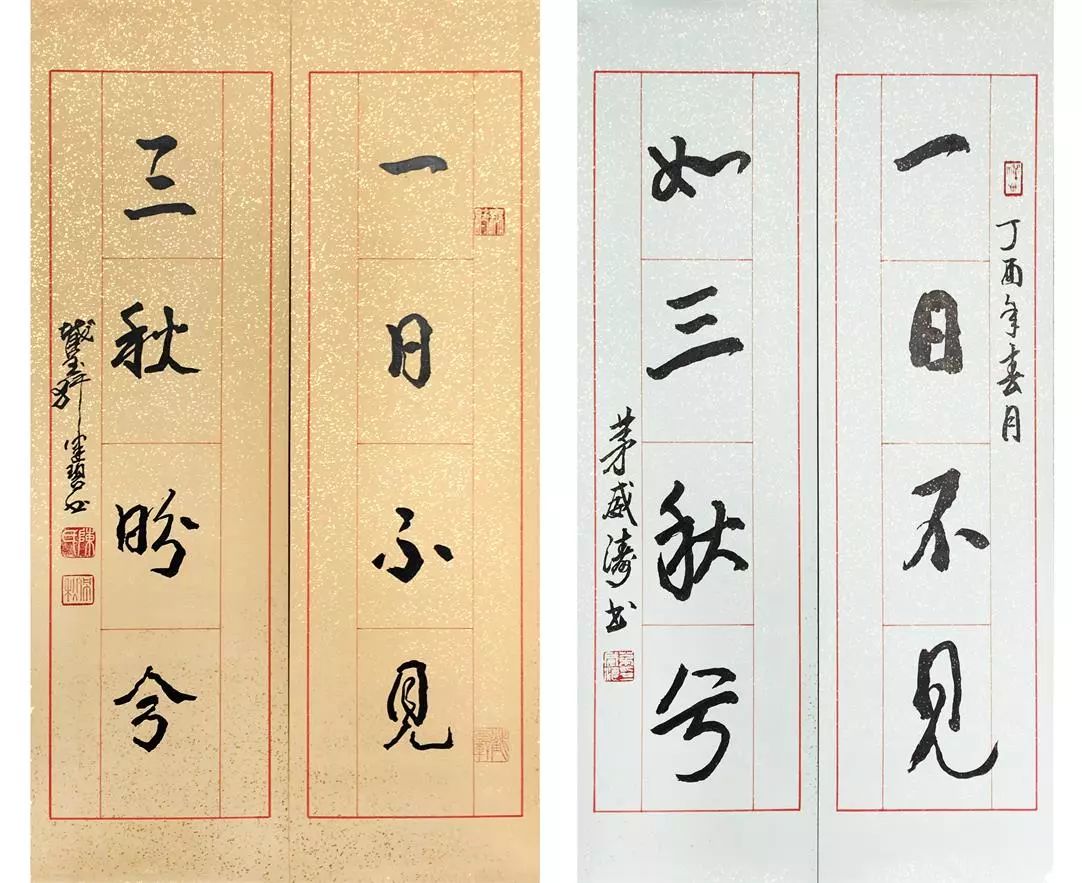 一日不見
三秋盼兮
丁酉年春月
一日不見
如三秋兮
茅威濤书